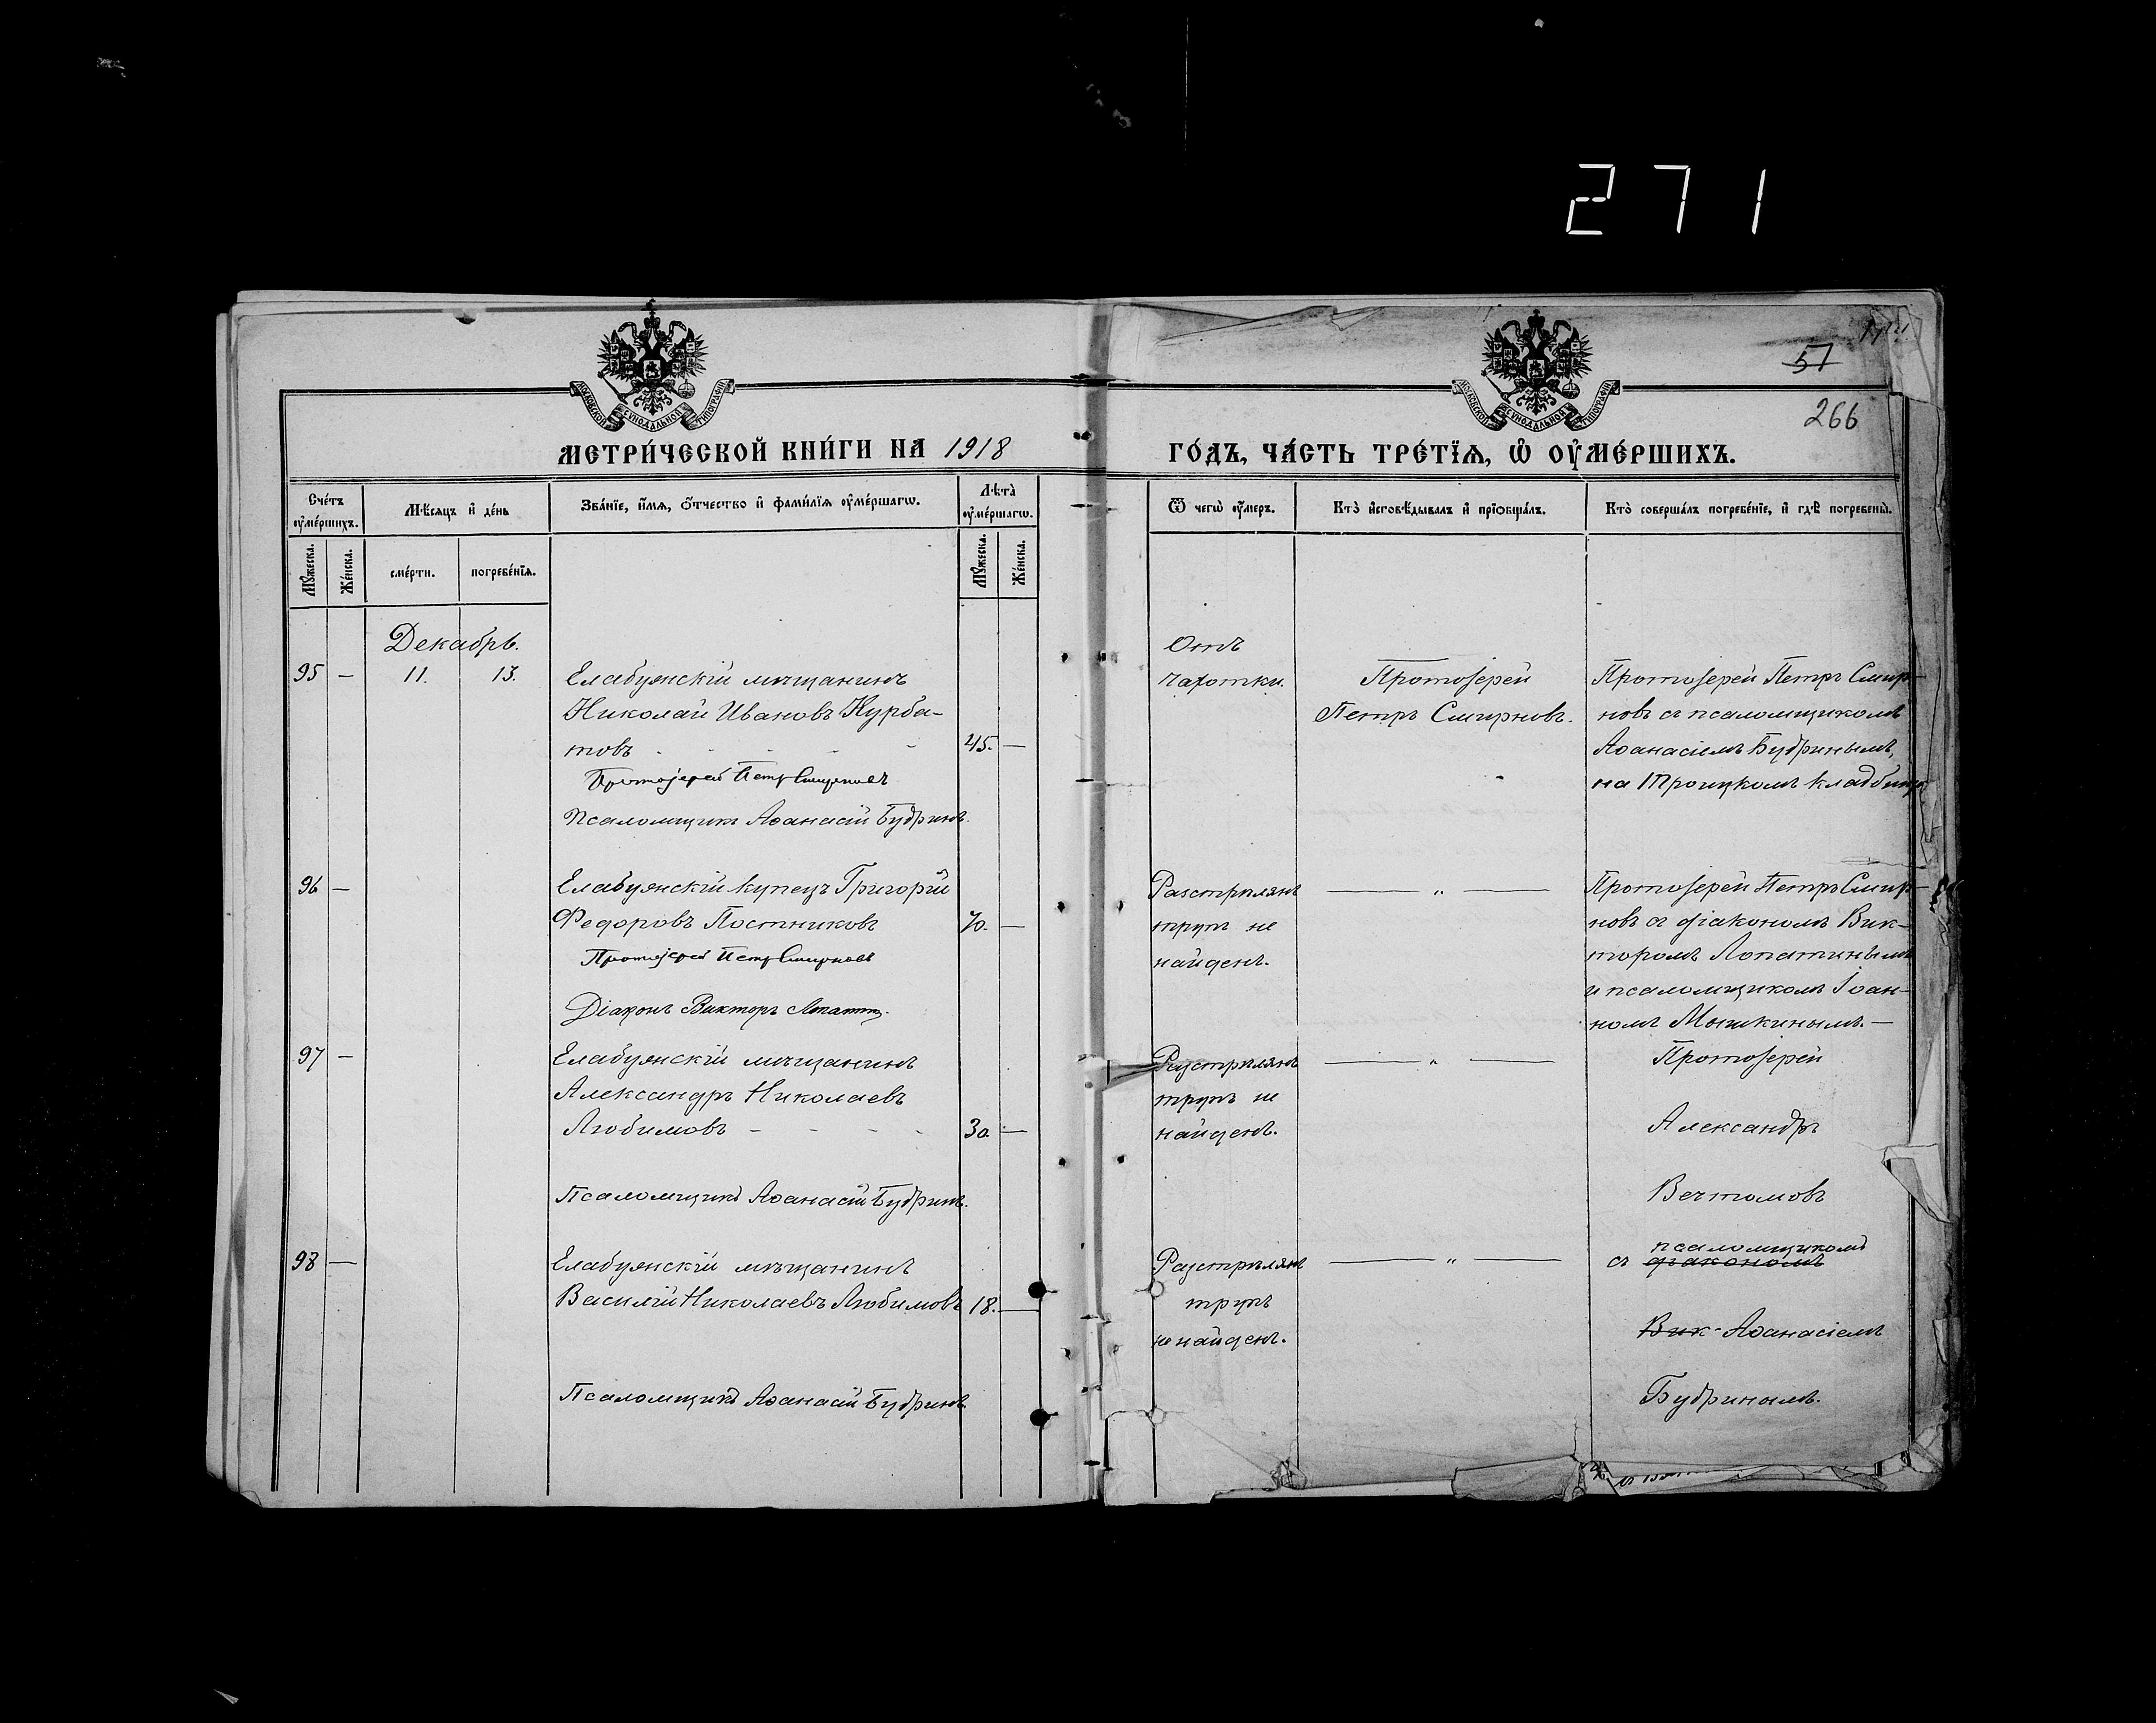 271
57
266
МОСКОВСКОЙ СѴНОДАЛЬНОЙ ТИПОГРАФІИ
МОСКОВСКОЙ СѴНОДАЛЬНОЙ ТИПОГРАФІИ
МЕТРИ́ЧЕСКОЙ КНИ́ГИ НА 1918
ГО́ДЪ, ЧА́СТЬ ТРЕ́ТЇѦ, Ѽ ОУ҆МЕ́РШИХЪ.
Сче́тъ оу҆ме́ршихъ.
Мѣ́сяцъ и҆ де́нь
Зва́нїе, и҆́мѧ, ѻ҆́тчество и҆ фами́лїѧ оу҆ме́ршагѡ.
Лѣ̀та оу҆ме́ршагѡ.
Ѿ чегѡ̀ оу҆́меръ.
Кто̀ и҆сповѣ́дывалъ и҆ прїѡбща́лъ.
Кто̀ соверша́лъ погребе́нїе, и҆ гдѣ̀ погребены̀.
Мꙋ́жеска.
Же́нска.
сме́рти.
погребе́нїѧ.
Мꙋ́жеска.
Же́нска.
Декабрь.
95 — 11. 13. Елабужскій мѣщанинъ
Николай Ивановъ Курба-
товъ - - - - 45. —
Протоіерей Петръ Смирновъ
Псаломщикъ Аѳанасій Будринъ.
Отъ
чахотки.
Протоіерей
Петръ Смирновъ.
Протоіерей Петръ Смир-
новъ съ псаломщикомъ
Аѳанасіемъ Будринымъ,
на Троицкомъ кладбищѣ
96 — Елабужскій купецъ Григорій
Федоровъ Постниковъ 70. —
Протоіерей Петръ Смирновъ
Діаконъ Викторъ Лопатин.
Разстрѣлянъ
трупъ не
найденъ.
— „ —
Протоіерей Петръ Смир-
новъ съ діакономъ Вик-
торомъ Лопатинымъ
и псаломщикомъ Іоан-
номъ Мышкинымъ. —
97 — Елабужскій мѣщанинъ
Александръ Николаевъ
Любимовъ - - - - 30. —
Псаломщикъ Аѳанасій Будринъ.
Разстрѣлянъ
трупъ не
найденъ.
— „ —
Протоіерей
Александръ
Вечтомовъ
98 — Елабужскій мѣщанинъ
Василій Николаевъ Любимовъ 18. —
Псаломщикъ Аѳанасій Будринъ
Разстрѣлянъ
трупъ
не найденъ.
— „ —
псаломщикомъ
съ діакономъ
Вик- Аѳанасіемъ
Будринымъ.